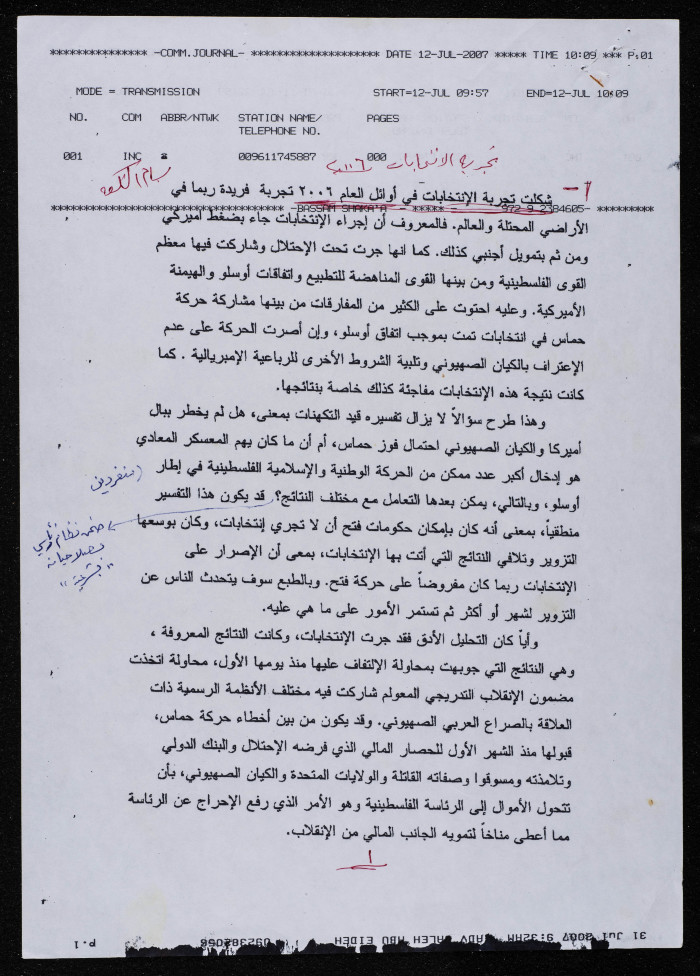 *************** -COMM.JOURNAL- ******************** DATE 12-JUL-2007 ***** TIME 10:09 *** P.01
MODE = TRANSMISSION START=12-JUL 09:57 END=12-JUL 10:09
NO. COM ABBR/NTWK STATION NAME/ PAGES
TELEPHONE NO.
001 INC ☎ 009611745887 000
تجربة الانتخابات ٢٠٠٦
بسام الشكعة
١- شكلت تجربة الإنتخابات في أوائل العام ٢٠٠٦ تجربة فريدة ربما في
************************************ -BASSAM SHAKA'A - ***** - 972 9 2384605- *********
الأراضي المحتلة والعالم. فالمعروف أن إجراء الإنتخابات جاء بضغط أميركي
ومن ثم بتمويل أجنبي كذلك. كما انها جرت تحت الإحتلال وشاركت فيها معظم
القوى الفلسطينية ومن بينها القوى المناهضة للتطبيع واتفاقات أوسلو والهيمنة
الأميركية. وعليه احتوت على الكثير من المفارقات من بينها مشاركة حركة
حماس في انتخابات تمت بموجب اتفاق أوسلو، وإن أصرت الحركة على عدم
الإعتراف بالكيان الصهيوني وتلبية الشروط الأخرى للرباعية الإمبريالية . كما
كانت نتيجة هذه الإنتخابات مفاجئة كذلك خاصة بنتائجها.
وهذا طرح سؤالاً لا يزال تفسيره قيد التكهنات بمعنى، هل لم يخطر ببال
أميركا والكيان الصهيوني احتمال فوز حماس، أم أن ما كان يهم المعسكر المعادي
هو إدخال أكبر عدد ممكن من الحركة الوطنية والإسلامية الفلسطينية في إطار
منفردين
أوسلو، وبالتالي، يمكن بعدها التعامل مع مختلف النتائج؟ قد يكون هذا التفسير
منطقياً، بمعنى أنه كان بإمكان حكومات فتح أن لا تجري إنتخابات، وكان بوسعها
ضمن نظام
التزوير وتلافي النتائج التي أتت بها الإنتخابات، بمعى أن الإصرار على
الإنتخابات ربما كان مفروضاً على حركة فتح. وبالطبع سوف يتحدث الناس عن
التزوير لشهر أو أكثر ثم تستمر الأمور على ما هي عليه.
وأياً كان التحليل الأدق فقد جرت الإنتخابات، وكانت النتائج المعروفة ،
وهي النتائج التي جوبهت بمحاولة الإلتفاف عليها منذ يومها الأول، محاولة اتخذت
مضمون الإنقلاب التدريجي المعولم شاركت فيه مختلف الأنظمة الرسمية ذات
العلاقة بالصراع العربي الصهيوني. وقد يكون من بين أخطاء حركة حماس،
قبولها منذ الشهر الأول للحصار المالي الذي فرضه الإحتلال والبنك الدولي
وتلامذته ومسوقوا وصفاته القاتلة والولايات المتحدة والكيان الصهيوني، بأن
تتحول الأموال إلى الرئاسة الفلسطينية وهو الأمر الذي رفع الإحراج عن الرئاسة
مما أعطى مناخاً لتمويه الجانب المالي من الإنقلاب.
١
31 Jul 2007 9:32AM ADV SALEH ABU EIDEH 092382066 P.1